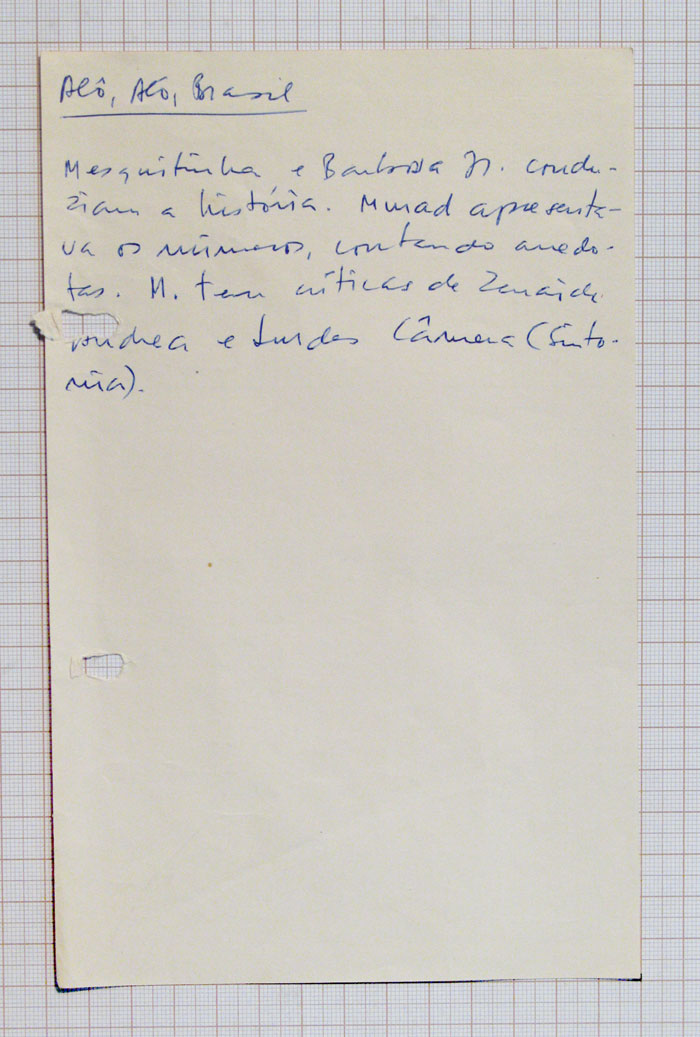 Alô, Alô, Brasil
Mesquitinha e Barbosa Jr. condu-
ziam a história. Murad apresenta-
va os números, contando anedo-
tas. M. tem críticas de Zenaide
Andréa e Lurdes Câmera (Sinto-
nia).